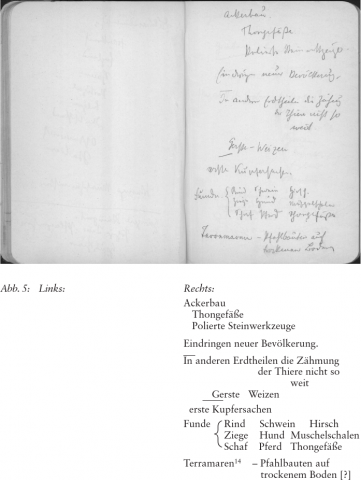 Ackerbau
Thongefäße
Polierte Steinwerkzeuge
Eindringen neuer Bevölkerung.
In anderen Erdtheilen die Zähmung
der Thiere nicht so
weit
Gerste – Weizen
erste Kupfersachen
Funde { Rind Schwein Hirsch
Ziege Hund Muschelschalen
Schaf Pferd Thongefäße
Terramaren – Pfahlbauten auf
trockenem Boden
Abb. 5: Links:
Rechts:
Ackerbau
Thongefäße
Polierte Steinwerkzeuge
Eindringen neuer Bevölkerung.
In anderen Erdtheilen die Zähmung
der Thiere nicht so
weit
Gerste Weizen
erste Kupfersachen
Funde { Rind Schwein Hirsch
Ziege Hund Muschelschalen
Schaf Pferd Thongefäße
Terramaren¹⁴ – Pfahlbauten auf
trockenem Boden [?]